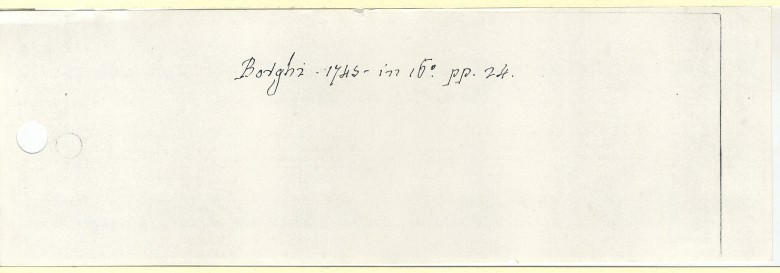 Borghi - 1745 - in 16° pp. 24.